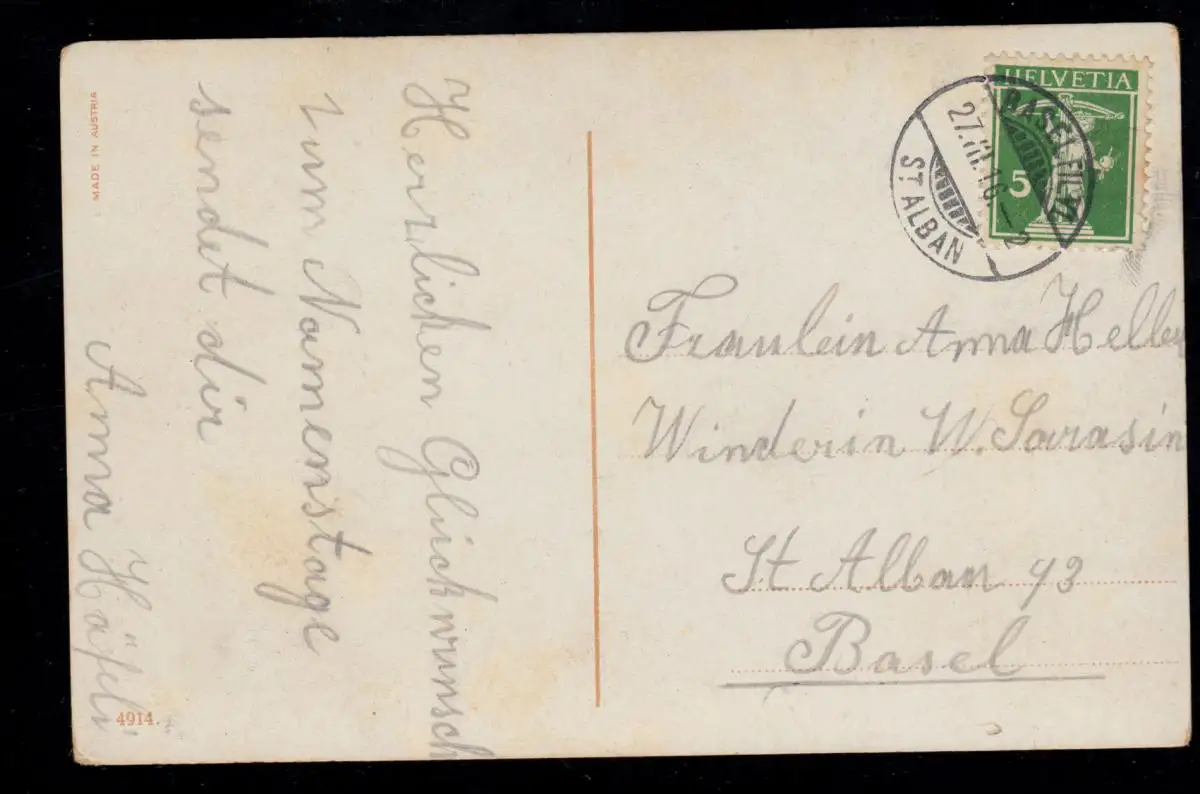 MADE IN AUSTRIA
Herzlichen Glückwunsch
zum Namenstage
sendet dir
Anna Häfeli
4914.
HELVETIA
5
BASEL FILIAL
27.III.16.–2
ST. ALBAN
Fraulein Anna Heller
Winderin W. Sarasin
St Alban 93
Basel